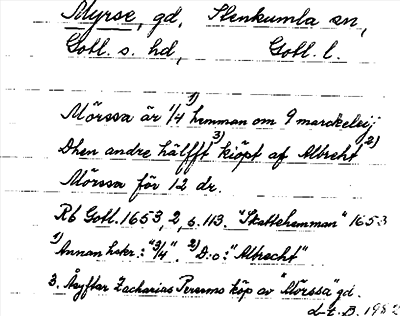 Myrse, gd, Stenkumla sn,
Gotl. s. hd, Gotl. l.
Mörssa är 1/4 1) hemman om 9 marckeleij
Dhen andre hälfft 3) kiöpt af Albrecht 2)
Mörssa för 12 dr.
Rb Gotl. 1653, 2, s. 113. "Skattehemman" 1653
1) Annan hskr.: "3/4". 2) D:o: "Albrecht"
3. Åsyftar Zacharias Perssons köp av "Mörssa" gd.